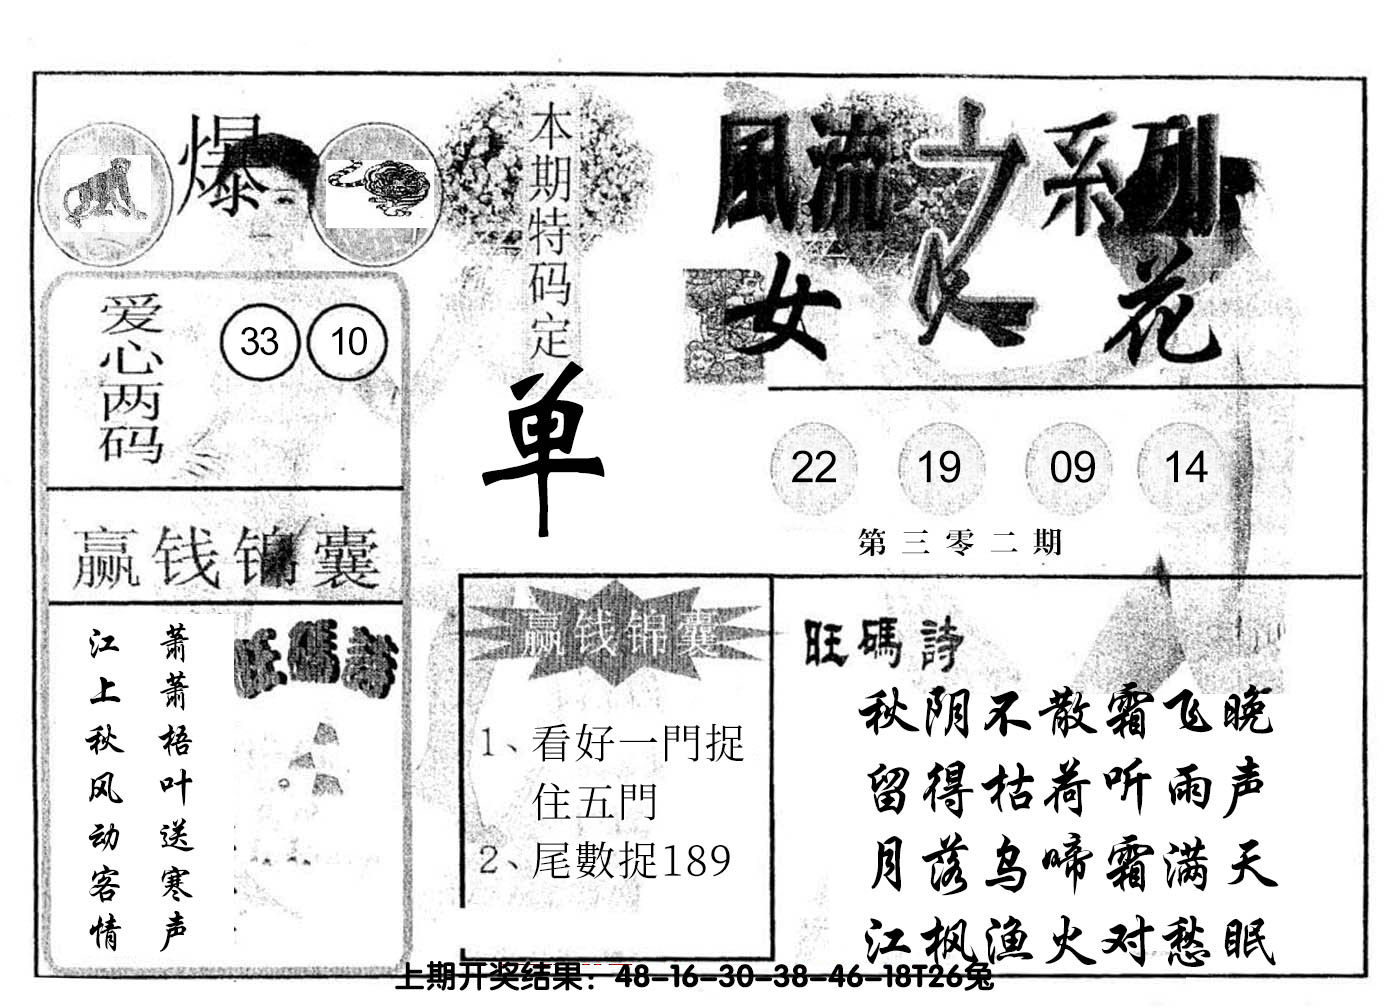 爆
爱心两码
33 10
赢钱锦囊
萧萧梧叶送寒声
江上秋风动客情
旺碼詩
本期特码定
单
風流之系列
女人花
22 19 09 14
第三零二期
赢钱锦囊
1、看好一門捉
住五門
2、尾數捉189
旺碼詩
秋阴不散霜飞晚
留得枯荷听雨声
月落乌啼霜满天
江枫渔火对愁眠
上期开奖结果：48-16-30-38-46-18T26兔